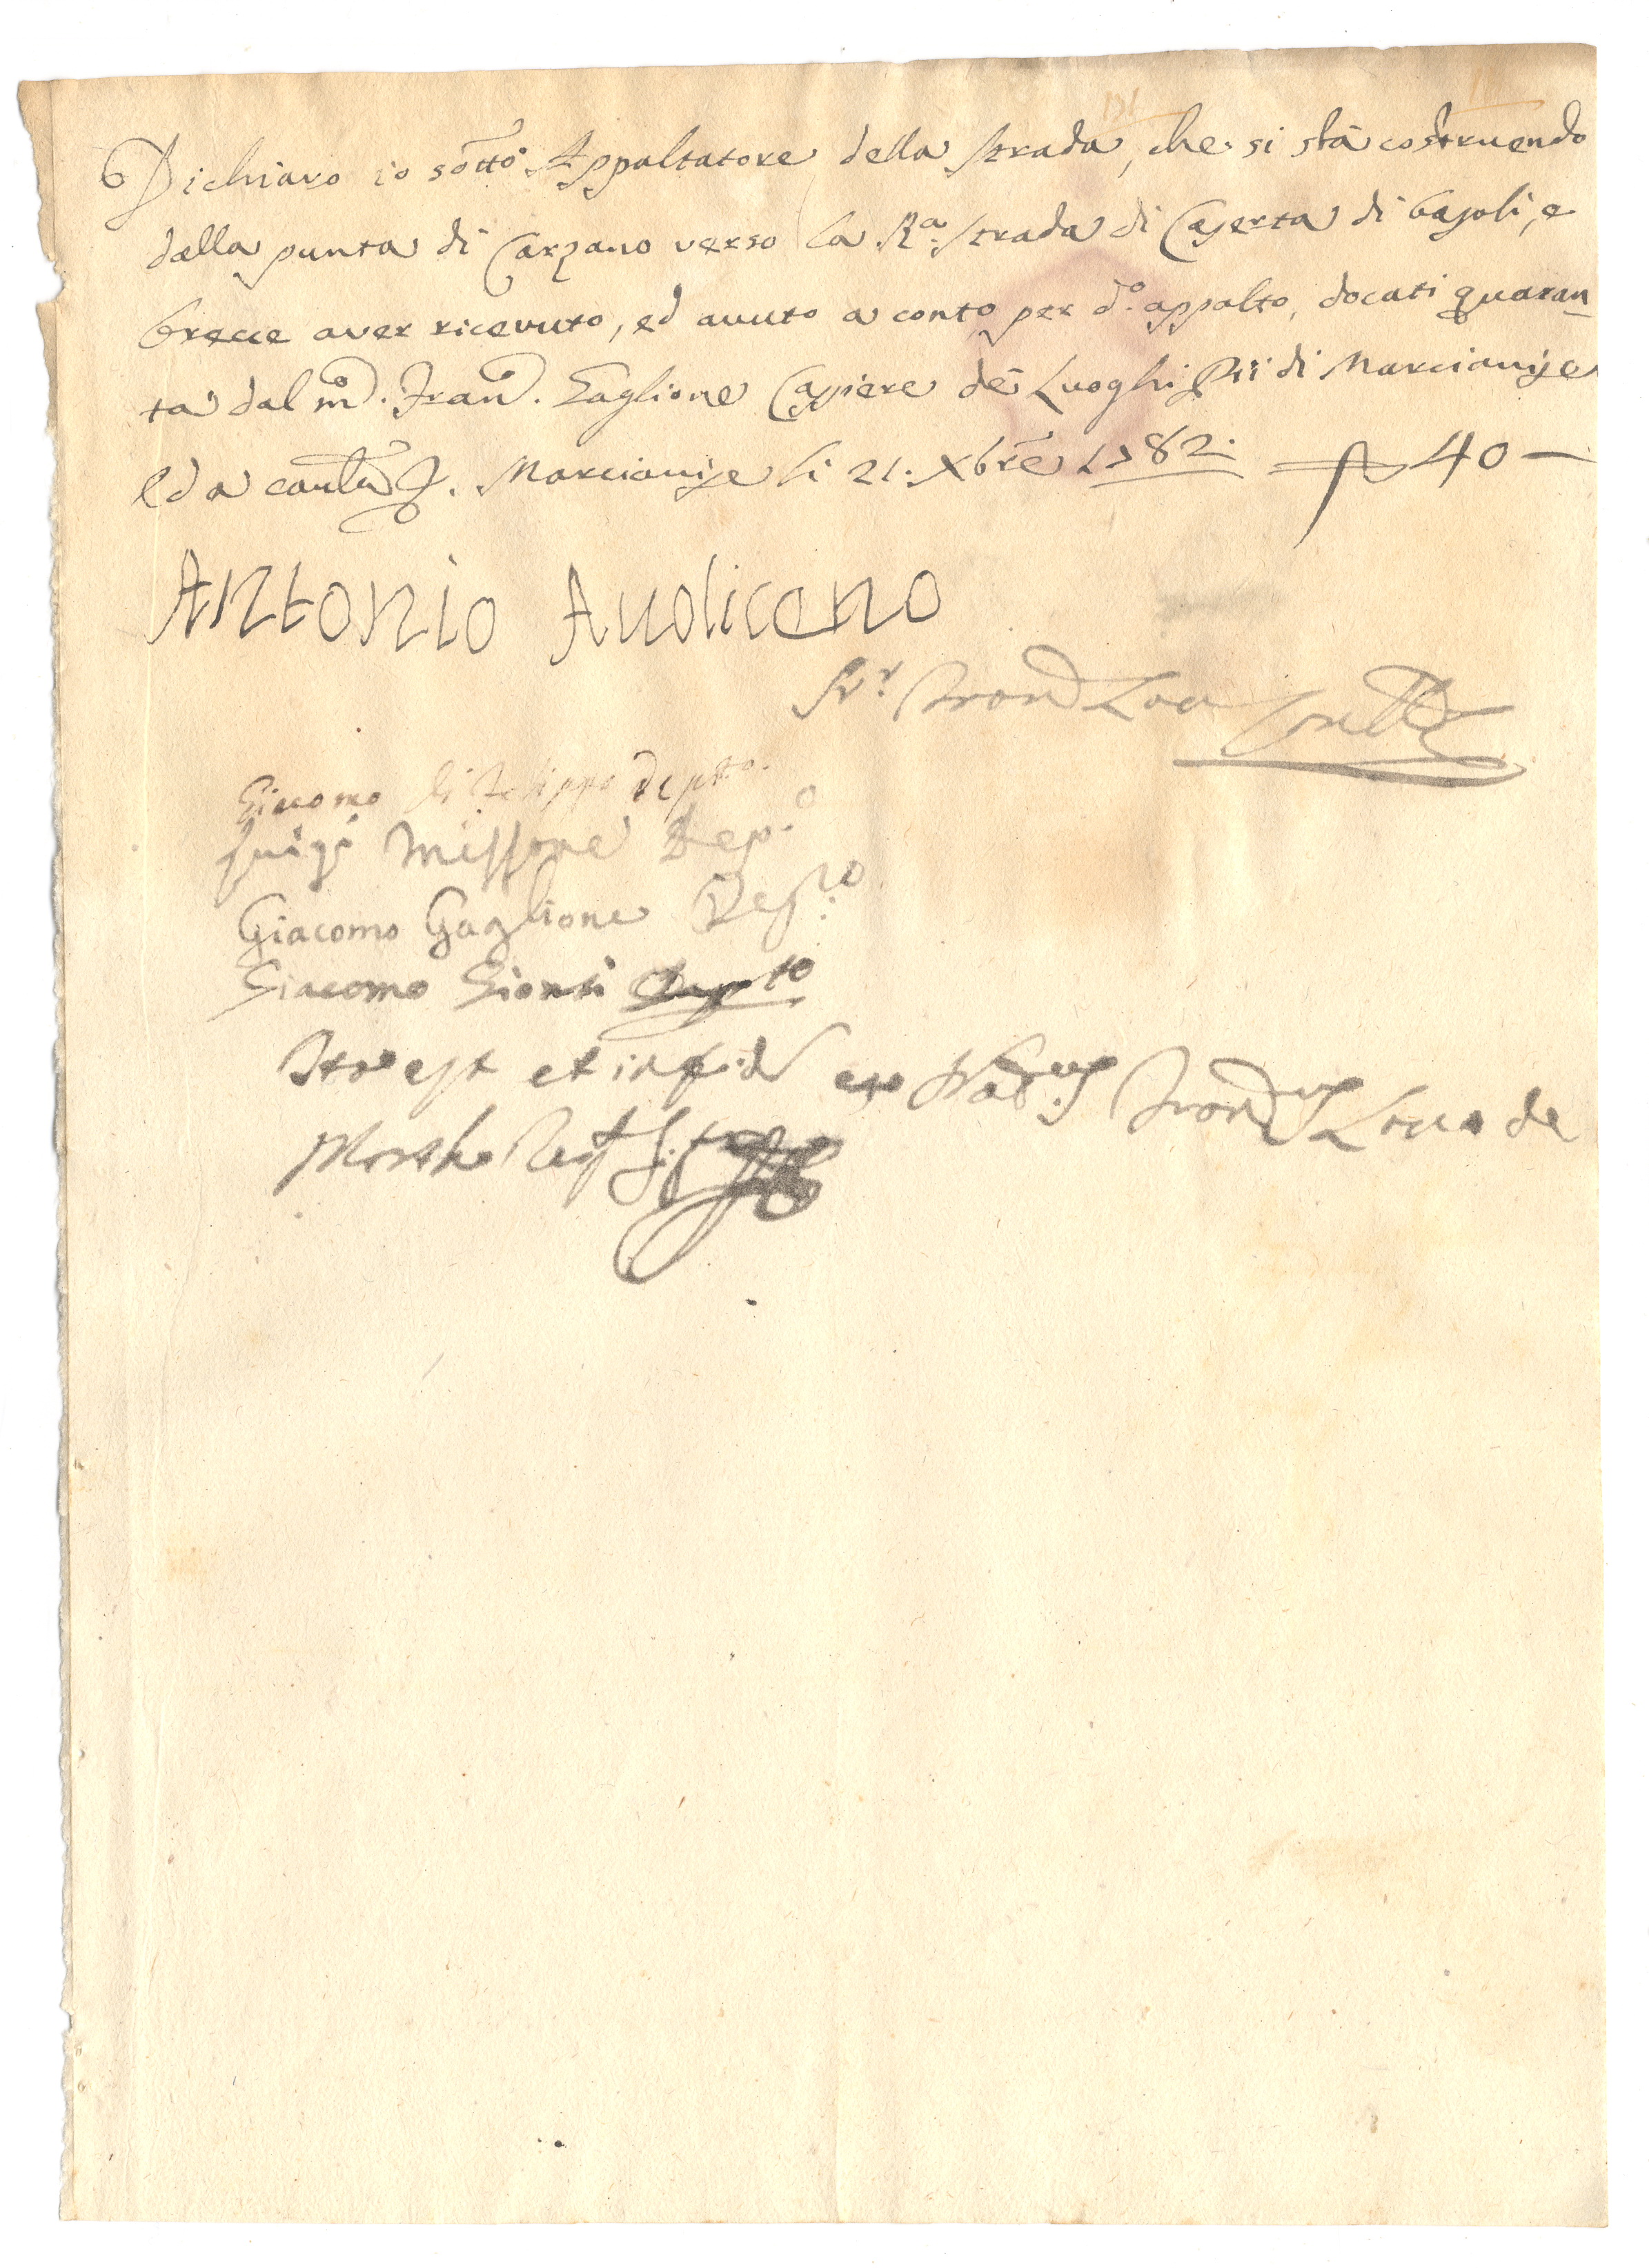 Dichiaro io sotto Appaltatore della strada, che si sta costruendo
dalla punta di Carzano verso la Ra: strada di Caserta di basoli, e
brecce aver ricevuto, ed avuto a conto per do. appalto, docati quaran
ta dal mo. Frano. Gaglione Cassiere de Luoghi Pii di Marcianise
ed a caut. Marcianise li 21: Xbre 1782. 40 —
Antonio Audiceno
Giacomo di Filippo Deptto.
Luigi Messore Dep.o
Giacomo Gaglione Dep:to
Giacomo Gionti Depto
Ita est et in fid ego Not:us Luca de